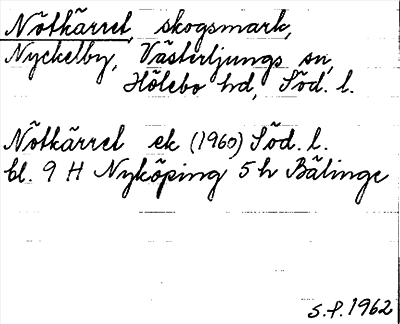 Nötkärret, skogsmark,
Nyckelby, Västerljungs sn,
Hölebo hd, Söd. l.
Nötkärret ek (1960) Söd. l.
bl. 9 H Nyköping 5 h Bälinge
S.P. 1962